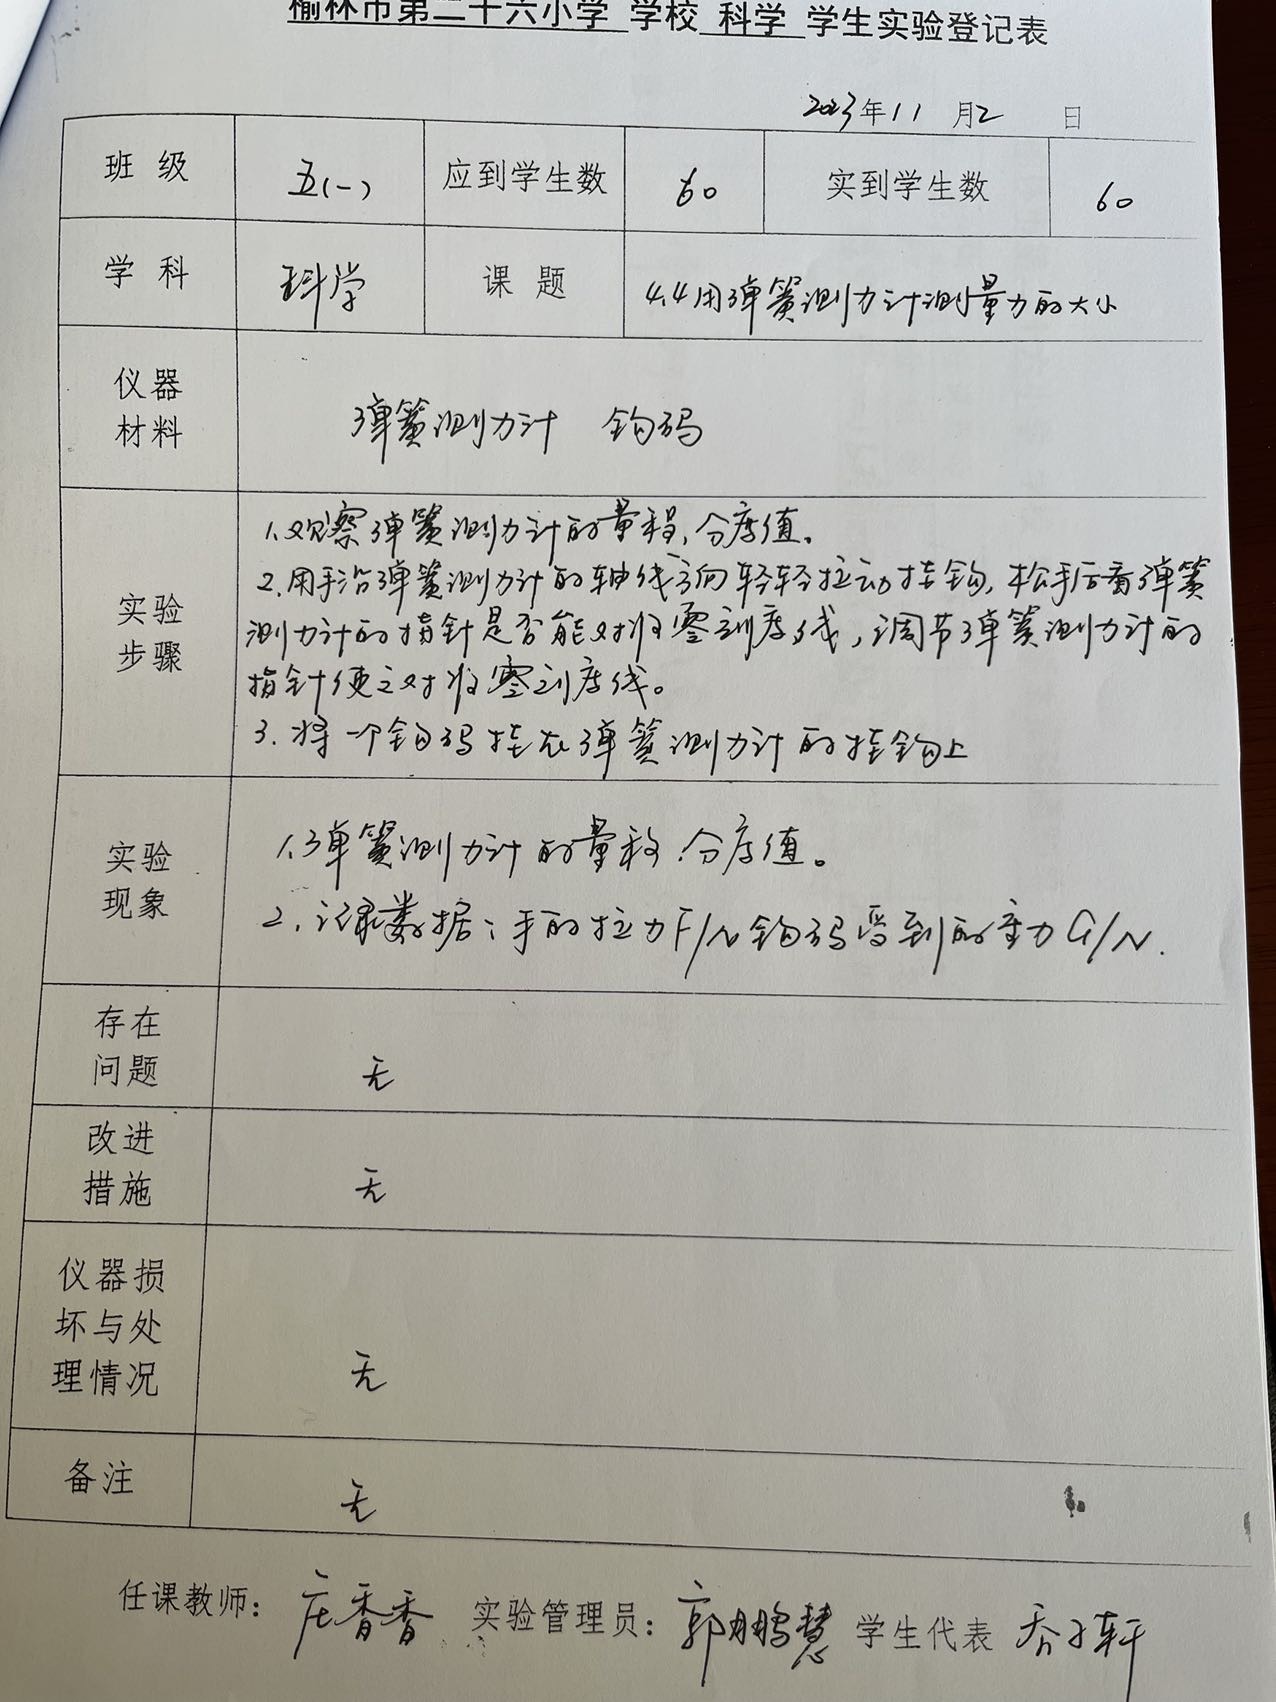 榆林市第二十六小学 学校 科学 学生实验登记表
2023年11月2日
班级 五(一) 应到学生数 60 实到学生数 60
学科 科学 课题 4.4用弹簧测力计测量力的大小
仪器
材料
弹簧测力计 钩码
实验
步骤
1.观察弹簧测力计的量程、分度值。
2.用手沿弹簧测力计的轴线方向轻轻拉动挂钩,松手后看弹簧
测力计的指针是否能对准零刻度线,调节弹簧测力计的
指针使之对准零刻度线。
3.将一个钩码挂在弹簧测力计的挂钩上
实验
现象
1.弹簧测力计的量程.分度值。
2.记录数据:手的拉力F/N钩码受到的重力G/N.
存在
问题
无
改进
措施
无
仪器损
坏与处
理情况
无
备注
无
任课教师: 庄香香 实验管理员: 郭鹏慧 学生代表 乔子轩